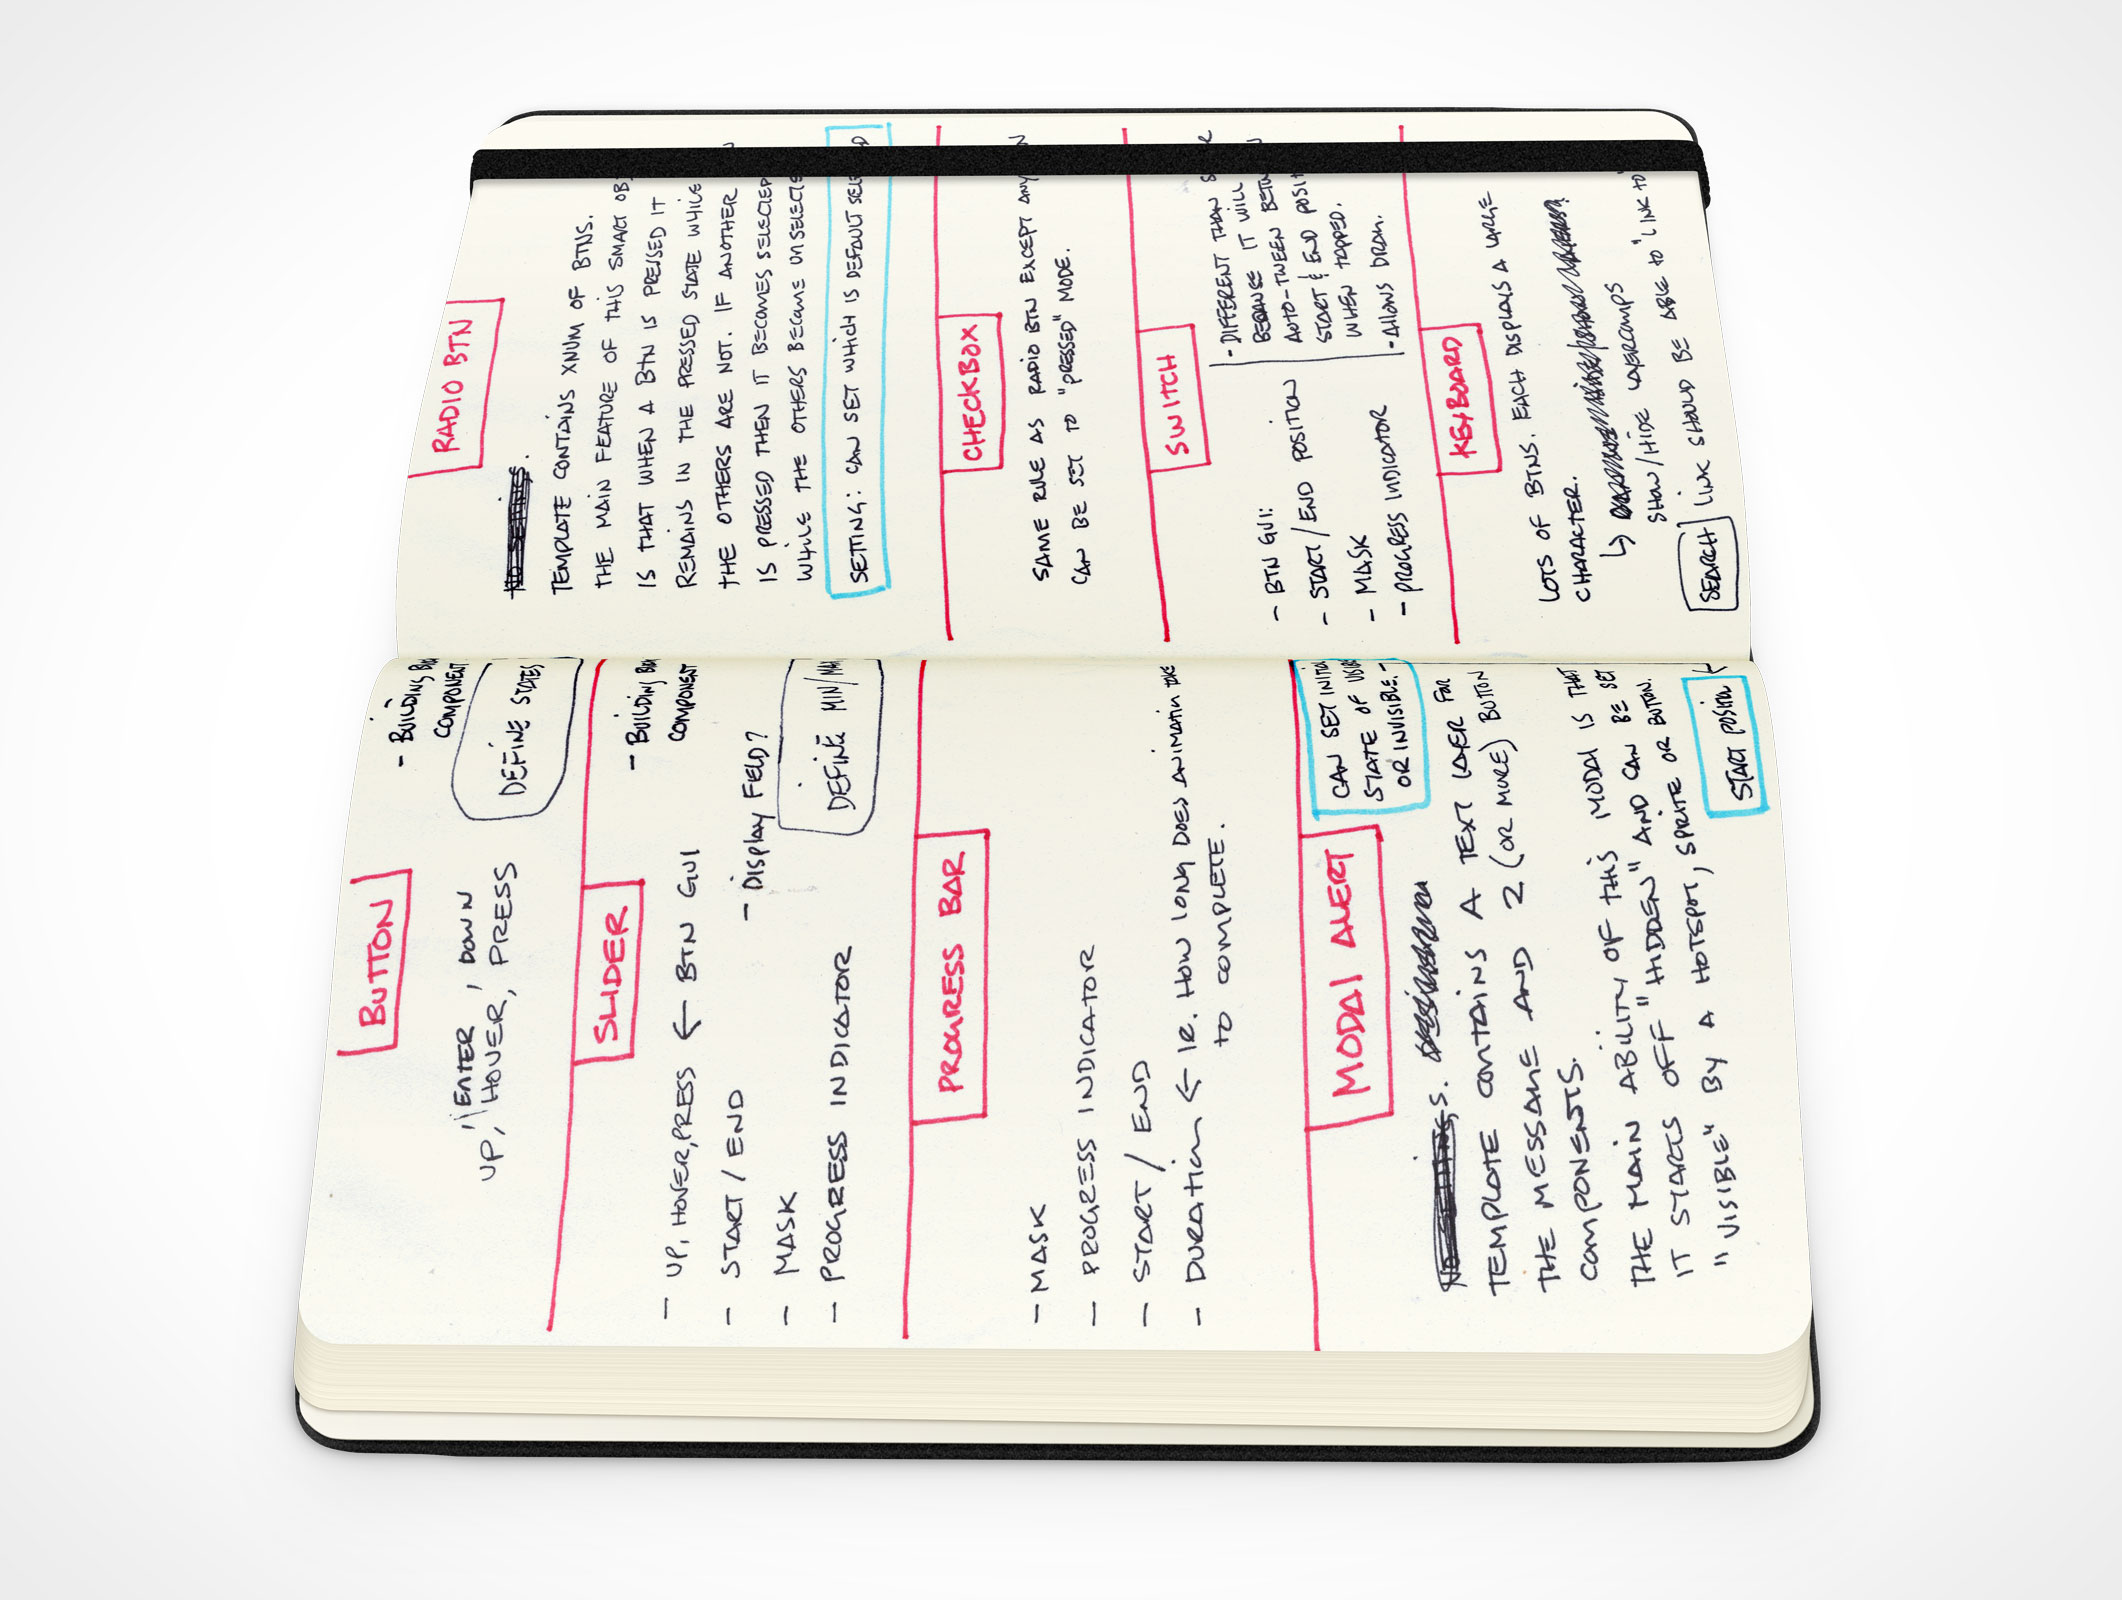 BUTTON
- BUILDING
COMPONENT
ENTER, DOWN
UP, HOVER, PRESS
DEFINE STATES
SLIDER
- BUILDING
COMPONENT
- UP, HOVER, PRESS ← BTN GUI
- START / END
- DISPLAY FIELD?
- MASK
- PROGRESS INDICATOR
DEFINE MIN/MAX
PROGRESS BAR
- MASK
- PROGRESS INDICATOR
- START / END
- DURATION ← IE. HOW LONG DOES ANIMATION TAKE
TO COMPLETE.
MODAL ALERT
CAN SET INITIAL
STATE OF
OR INVISIBLE. -
NO SETTINGS.
TEMPLATE CONTAINS A TEXT LAYER FOR
THE MESSAGE AND 2 (OR MORE) BUTTON
COMPONENTS.
THE MAIN ABILITY OF THIS MODAL IS THAT
IT STARTS OFF "HIDDEN" AND CAN BE SET
"VISIBLE" BY A HOTSPOT, SPRITE OR BUTTON.
START POSITION
RADIO BTN
NO SETTINGS.
TEMPLATE CONTAINS XNUM OF BTNS.
THE MAIN FEATURE OF THIS SMART OBJ
IS THAT WHEN A BTN IS PRESSED IT
REMAINS IN THE PRESSED STATE WHILE
THE OTHERS ARE NOT. IF ANOTHER
IS PRESSED THEN IT BECOMES SELECTED
WHILE THE OTHERS BECOME UNSELECTED
SETTING: CAN SET WHICH IS DEFAULT SELECTED
CHECKBOX
SAME RULE AS RADIO BTN EXCEPT ANY
CAN BE SET TO "PRESSED" MODE.
SWITCH
- BTN GUI:
- START / END POSITION
- MASK
- PROGRESS INDICATOR
- DIFFERENT THAN
BECAUSE IT WILL
AUTO-TWEEN BETWEEN
START & END POSITION
WHEN TAPPED.
- ALLOWS DRAG.
KEYBOARD
LOTS OF BTNS. EACH DISPLAYS A LARGE
CHARACTER.
↳ SHOW/HIDE LAYERCOMPS
SEARCH LINK SHOULD BE ABLE TO "LINK TO"